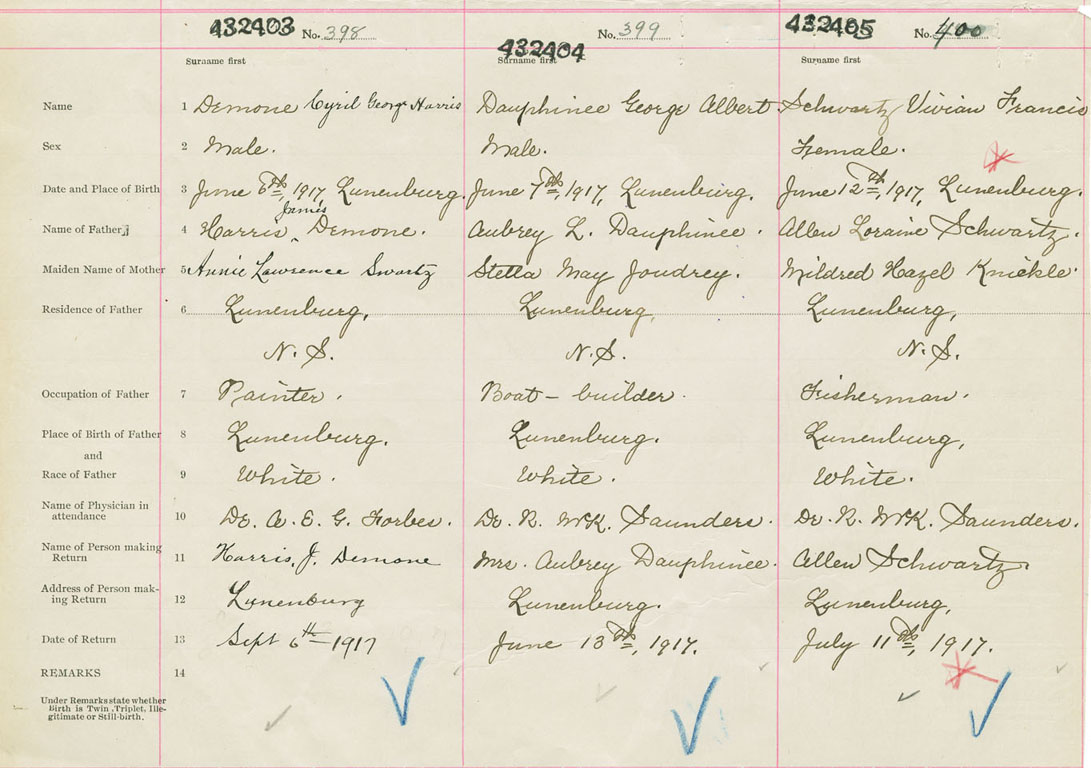 432403 No. 398 432404 No. 399 432405 No. 400
Surname first Surname first Surname first
Name 1 Demone Cyril George Harris Dauphinee George Albert Schwartz Vivian Francis
Sex 2 Male. Male. Female.
Date and Place of Birth 3 June 6th, 1917, Lunenburg. June 7th, 1917, Lunenburg. June 12th, 1917, Lunenburg.
James
Name of Father 4 Harris ‸ Demone. Aubrey L. Dauphinee. Allen Loraine Schwartz.
Maiden Name of Mother 5 Annie Lawrence Swartz Stella May Joudrey. Mildred Hazel Knickle.
Residence of Father 6 Lunenburg, Lunenburg, Lunenburg,
N. S. N. S. N. S.
Occupation of Father 7 Painter. Boat - builder. Fisherman.
Place of Birth of Father 8 Lunenburg. Lunenburg. Lunenburg,
and
Race of Father 9 White. White. White.
Name of Physician in
attendance 10 Dr. A. E. G. Forbes. Dr. R. McK. Saunders. Dr. R. McK. Saunders.
Name of Person making
Return 11 Harris, J. Demone Mrs. Aubrey Dauphinee. Allen Schwartz.
Address of Person mak-
ing Return 12 Lunenburg Lunenburg. Lunenburg,
Date of Return 13 Sept 6th 1917 June 13th, 1917. July 11th, 1917.
REMARKS 14
Under Remarks state whether
Birth is Twin, Triplet, Ille-
gitimate or Still-birth.